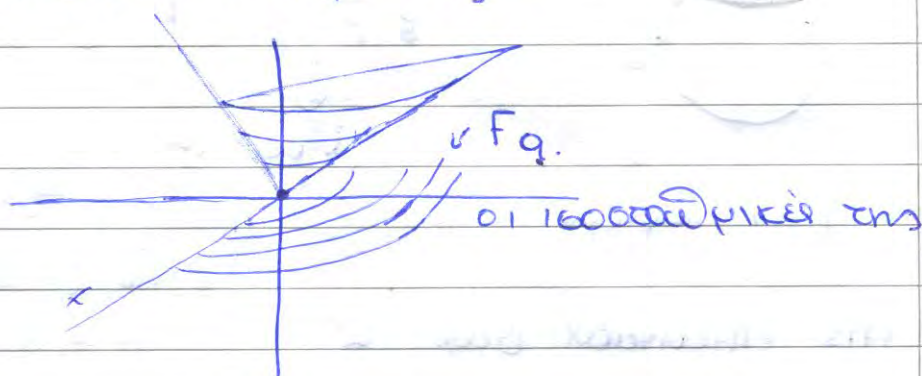 Fq.
οι ισοσταθμικές της
x